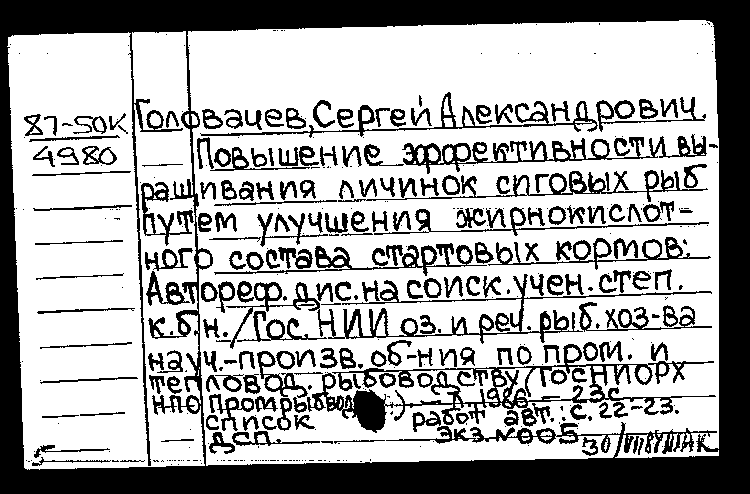 87-50К
4980
Головачев, Сергей Александрович.
Повышение эффективности вы-
ращивания личинок сиговых рыб
путем улучшения жирнокислот-
ного состава стартовых кормов:
Автореф. дис. на соиск. учен. степ.
к.б.н. / Гос. НИИ оз. и реч. рыб. хоз-ва
науч.-произв. об-ния по пром. и
тепловод. рыбоводству (ГОСНИОРХ
НПО Промрыбвод ). - Л. 1986. - 23с
список работ авт.: с. 22-23.
ДСП. Экз. №005
5